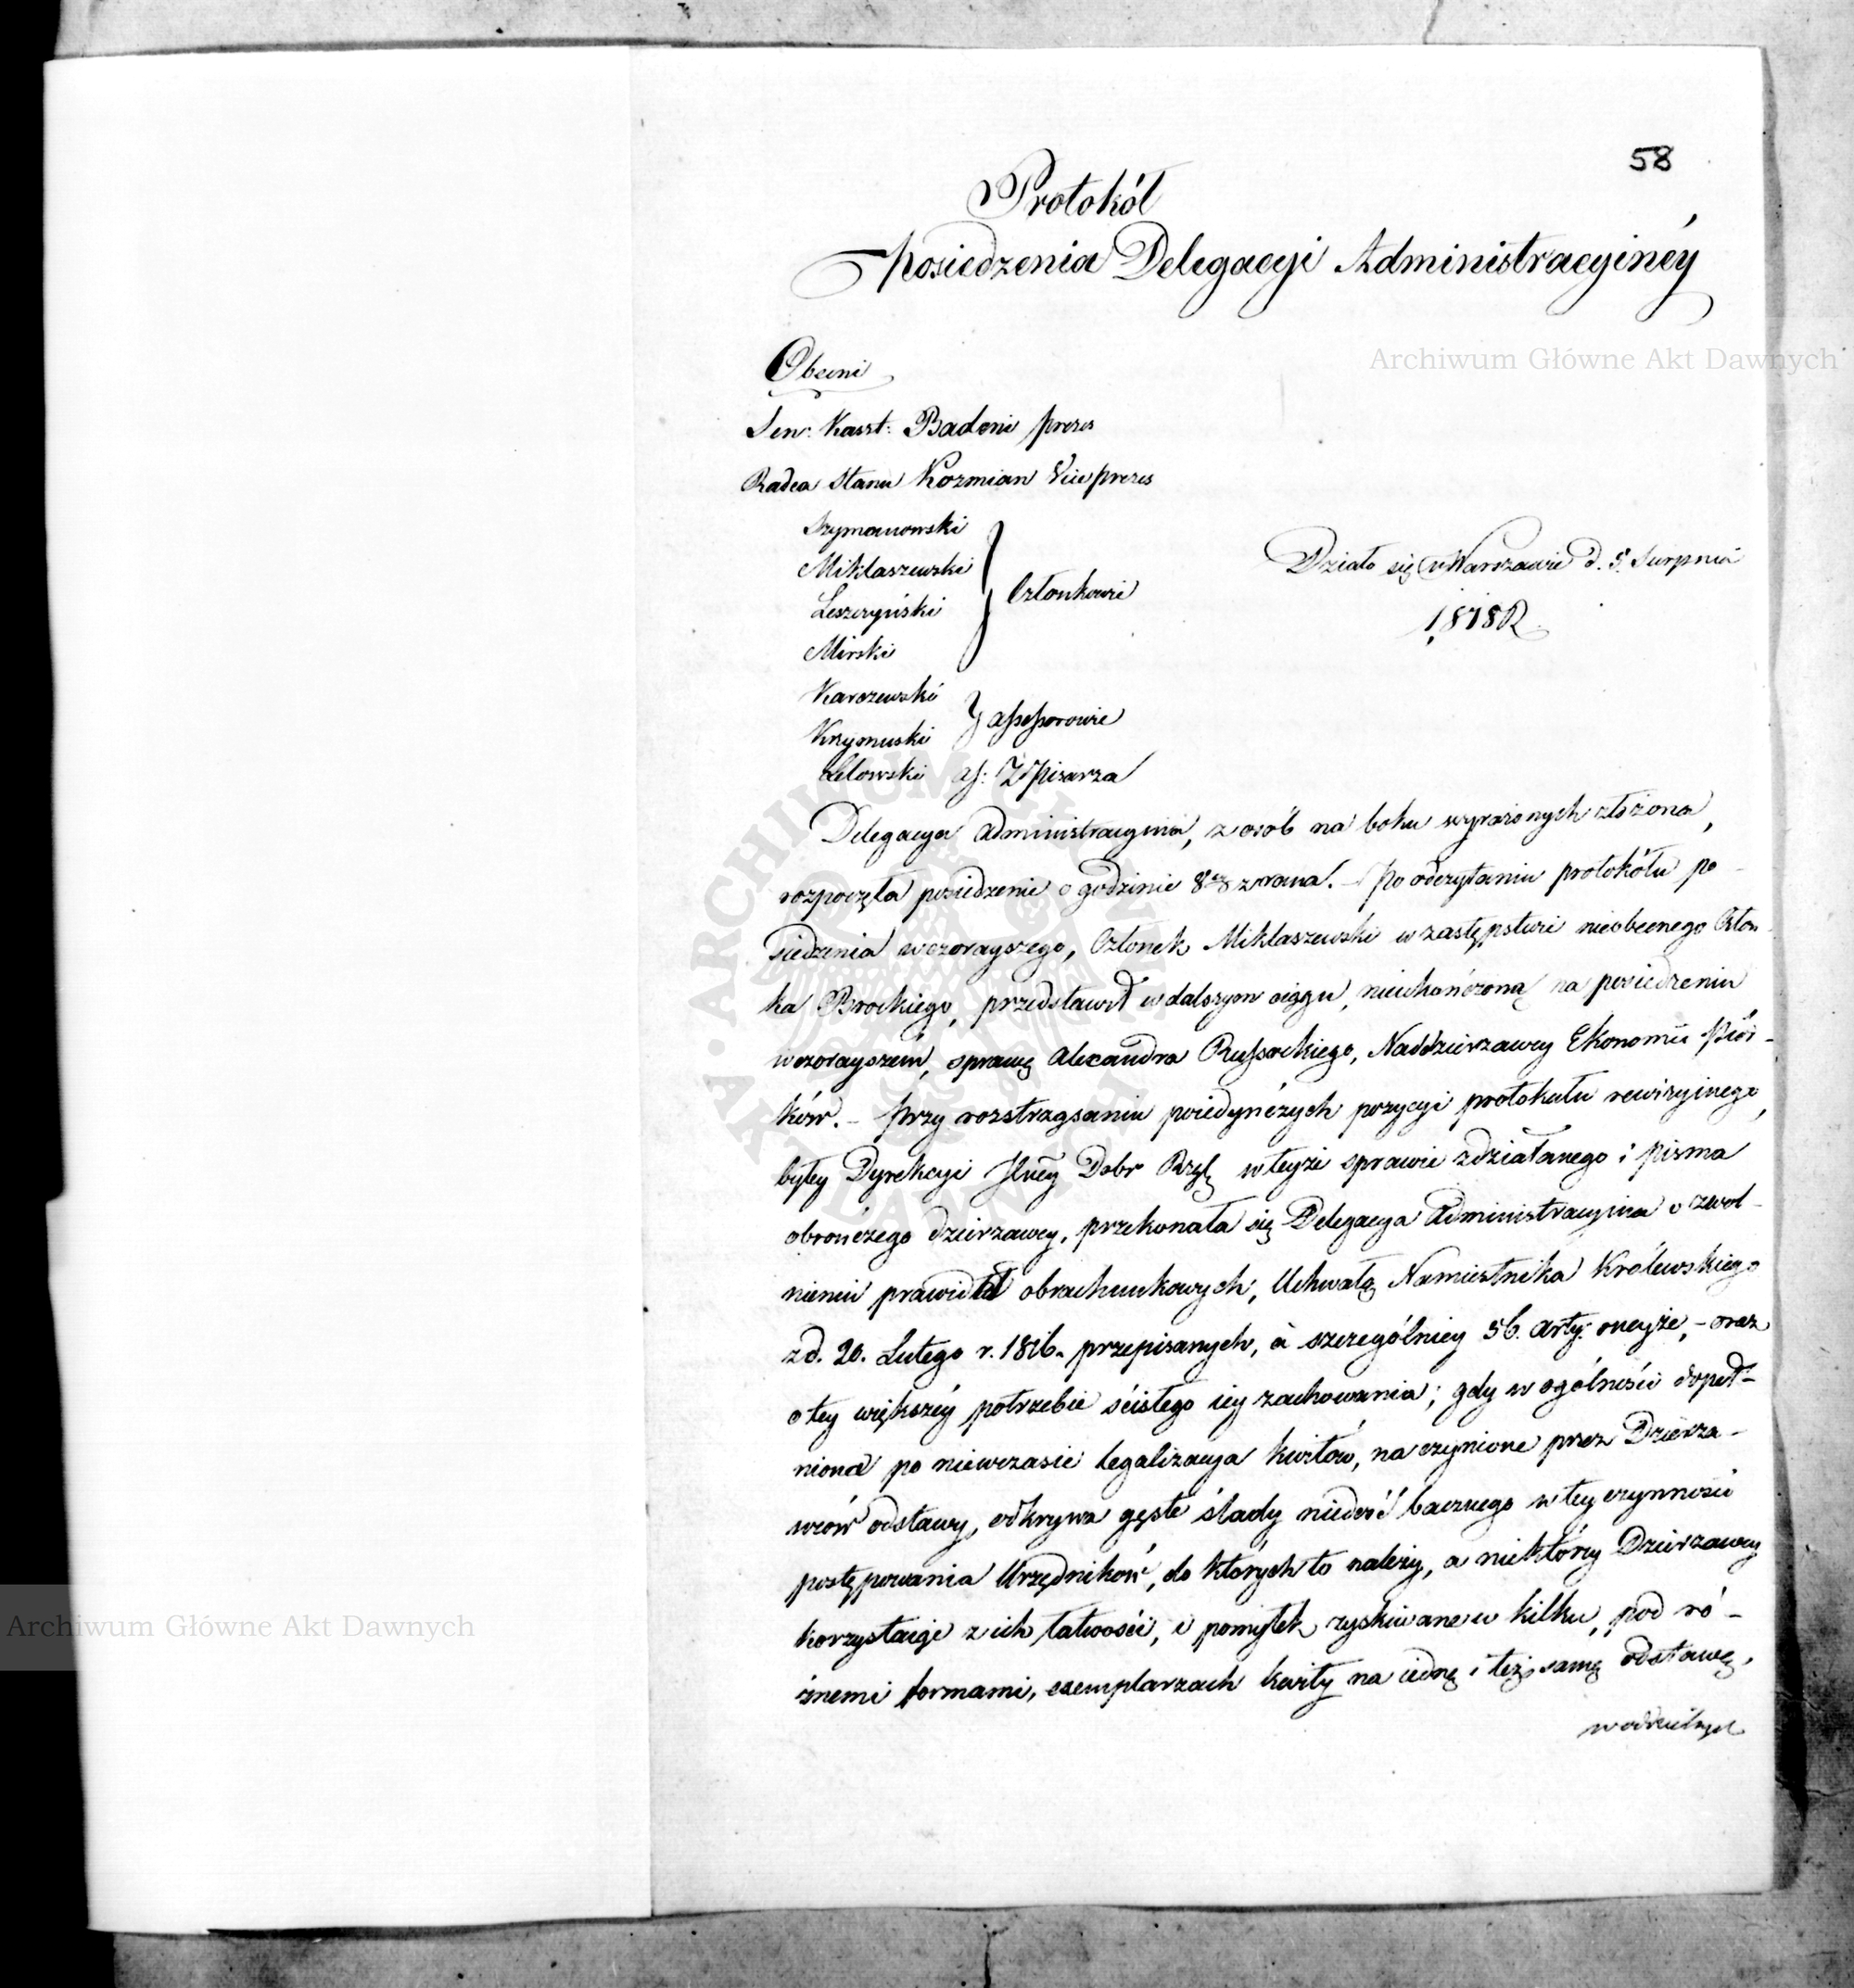 58
Protokół
Posiedzenia Delegacyi Administracyinéy
Archiwum Główne Akt Dawnych
Obecni
Sen: Kaszt: Badeni prezes
Radca Stanu Kozmian Vice prezes
Szymanowski
Miklaszewski
Leszczyński
Mirski
Członkowie
Działo się w Warszawie d. 5. Sierpnia
1818 R.
Karczewski
Krzymuski
assessorowie
Lelowski as: Z. Pisarza
Delegacya Administracyina, z osób na boku wyrażonych złożona,
rozpoczęła posiedzenie o godzinie 8ey zrana. – Po odczytaniu protokółu po-
siedzenia wczorayszego, Członek Miklaszewski w zastępstwie nieobecnego Człon-
ka Brockiego, przedstawił w dalszym ciągu, nieukończoną na posiedzeniu
wczorayszem, sprawę Alexandra Russockiego, Naddzierzawcy Ekonomii Piór-
ków. – Przy rozstrząsaniu poiedynczych pozycyi protokułu rewizyinego,
byłey Dyrekcyi Dobr w teyże sprawie zdziałanego i pisma
obrończego dzierzawcy, przekonała się Delegacya Administracyina o zwol-
nieniu prawideł obrachunkowych, Uchwałą Namiestnika Królewskiego
z d. 20. Lutego r. 1816. przepisanych, a szczególniey 56. arty: oneyże, – oraz
o tey większéy potrzebie ścisłego iey zachowania; gdy w ogólności dopeł-
niona po niewczasie legalizacya kwitów, na czynione przez Dzierża-
wców odstawy, odkrywa gęste ślady niedość bacznego w tey czynności
postępowania Urzędników, do których to należy, a niektórzy Dzierzawcy
korzystaiąc z ich łatwości, i pomyłek, zyskiwane w kilku, pod ró-
żnemi formami, exemplarzach kwity na iednę i też samę odstawę,
w oddzielnych
Archiwum Główne Akt Dawnych
ARCHIWUM GŁÓWNE AKT DAWNYCH